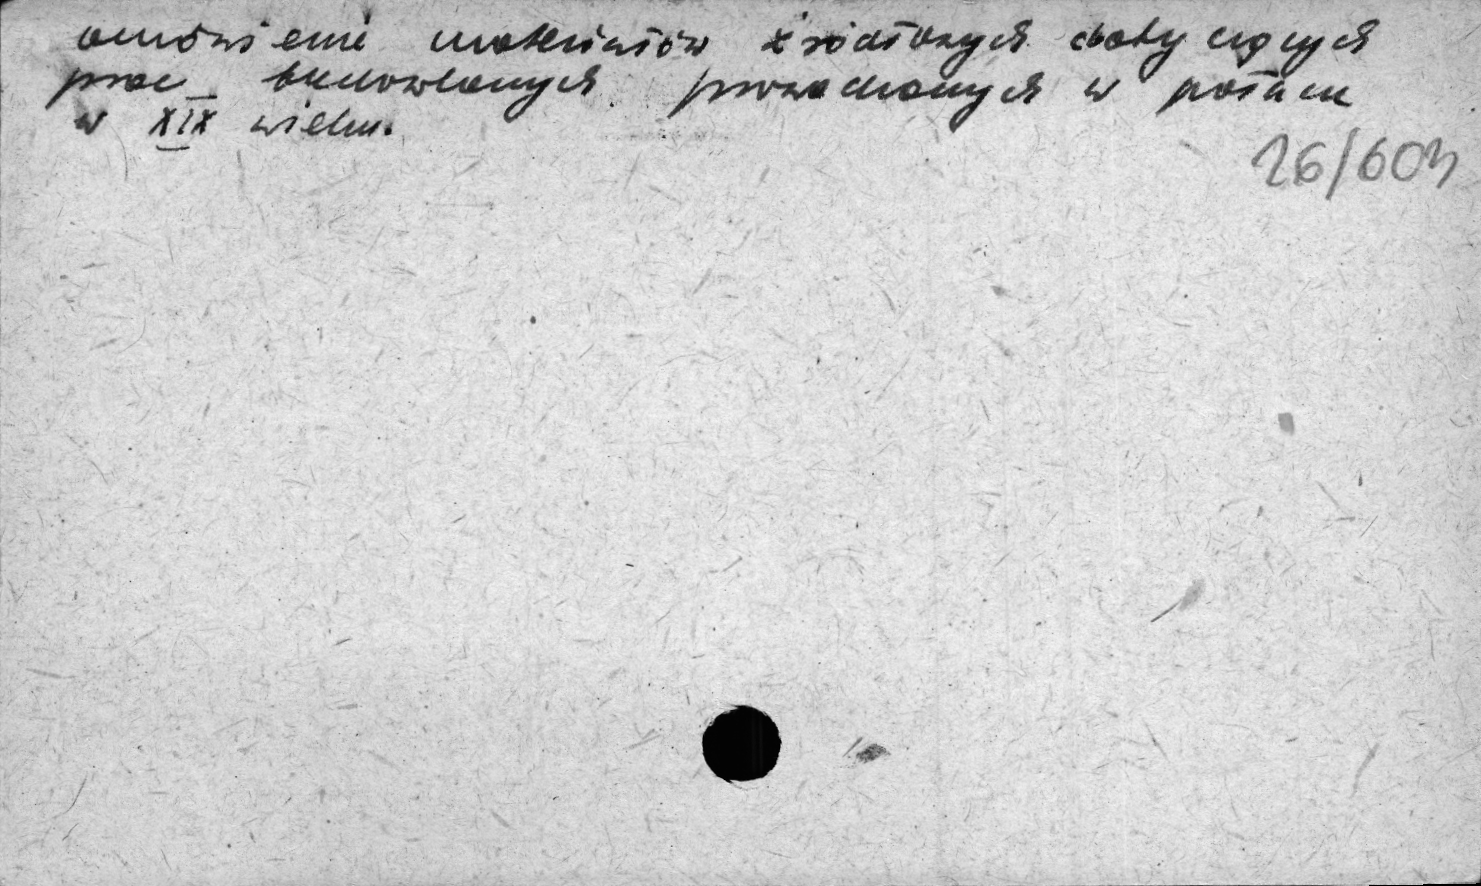 omówienie materiałów źródłowych dotyczących
prac budowlanych prowadzonych w pałacu
w XIX wieku.
26/603